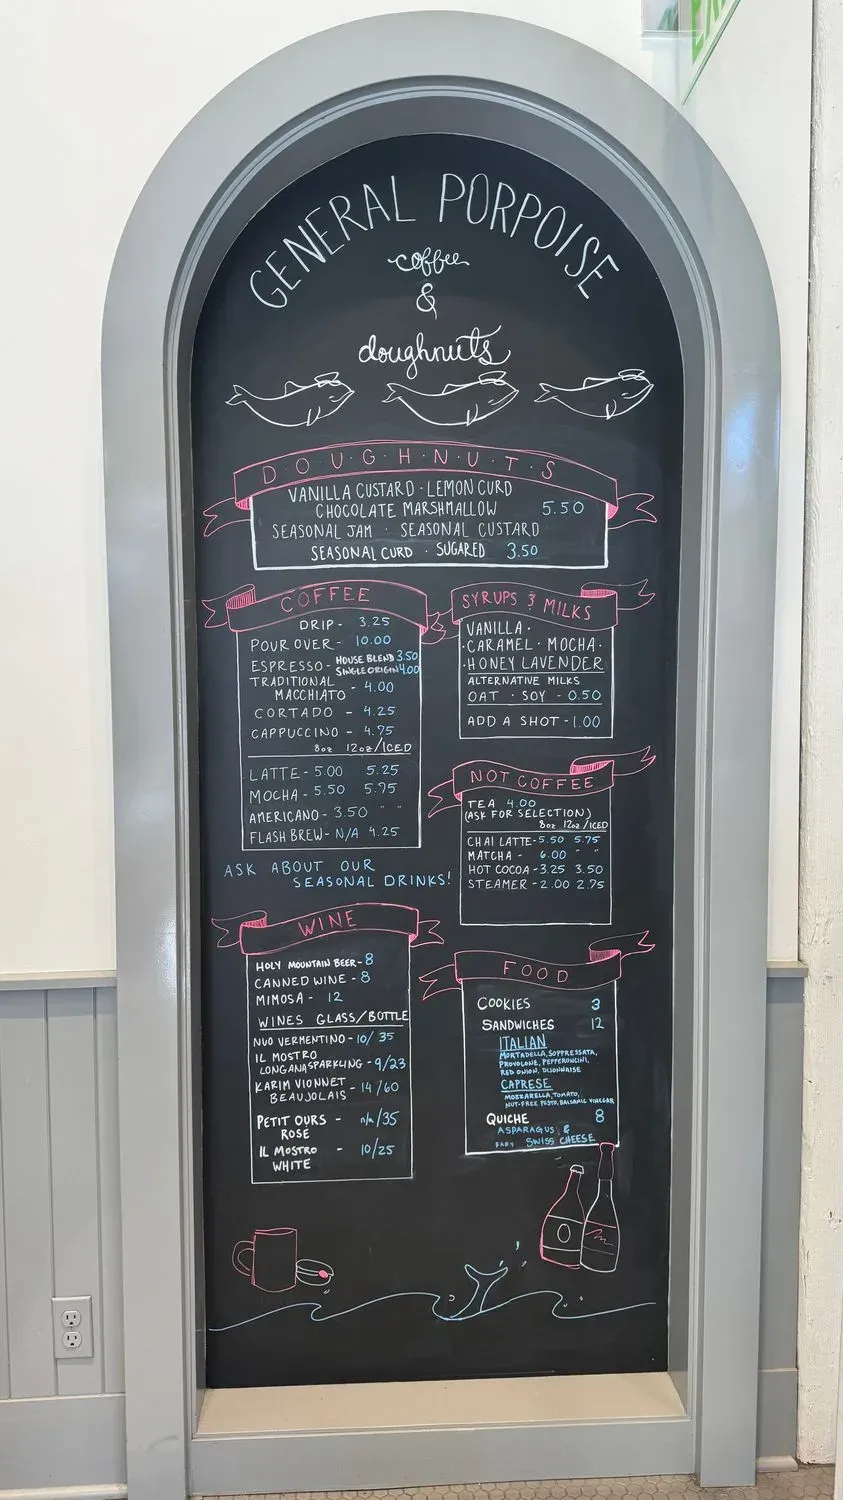 GENERAL PORPOISE
coffee
&
doughnuts
D·O·U·G·H·N·U·T·S
VANILLA CUSTARD · LEMON CURD
CHOCOLATE MARSHMALLOW 5.50
SEASONAL JAM · SEASONAL CUSTARD
SEASONAL CURD · SUGARED 3.50
COFFEE
DRIP - 3.25
POUR OVER - 10.00
ESPRESSO - HOUSE BLEND 3.50
SINGLE ORIGIN 4.00
TRADITIONAL
MACCHIATO - 4.00
CORTADO - 4.25
CAPPUCCINO - 4.75
8oz 12oz/ICED
LATTE - 5.00 5.25
MOCHA - 5.50 5.75
AMERICANO - 3.50 " "
FLASH BREW - N/A 4.25
ASK ABOUT OUR
SEASONAL DRINKS!
SYRUPS & MILKS
VANILLA ·
· CARAMEL · MOCHA ·
· HONEY LAVENDER
ALTERNATIVE MILKS
OAT · SOY - 0.50
ADD A SHOT - 1.00
NOT COFFEE
TEA 4.00
(ASK FOR SELECTION)
8oz 12oz/ICED
CHAI LATTE - 5.50 5.75
MATCHA - 6.00 " "
HOT COCOA - 3.25 3.50
STEAMER - 2.00 2.75
WINE
HOLY MOUNTAIN BEER - 8
CANNED WINE - 8
MIMOSA - 12
WINES GLASS/BOTTLE
NUO VERMENTINO - 10/35
IL MOSTRO
LONGANA SPARKLING - 9/23
KARIM VIONNET - 14/60
BEAUJOLAIS
PETIT OURS - n/a/35
ROSE
IL MOSTRO - 10/25
WHITE
FOOD
COOKIES 3
SANDWICHES 12
ITALIAN
MORTADELLA, SOPPRESSATA,
PROVOLONE, PEPPERONCINI,
RED ONION, DIJONNAISE
CAPRESE
MOZZARELLA, TOMATO,
NUT-FREE PESTO, BALSAMIC VINEGAR
QUICHE 8
ASPARAGUS &
BABY SWISS CHEESE